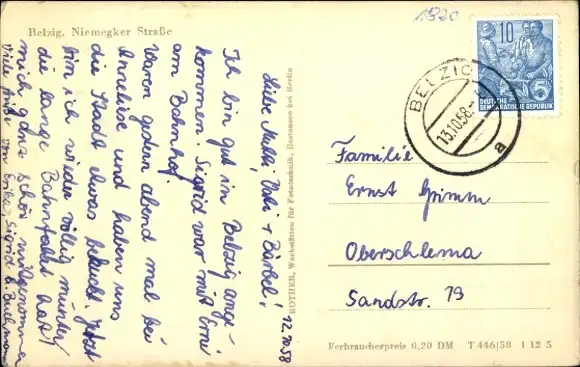 Belzig, Niemegker Straße
1820
12.10.58
Liebe Mutti, Vati + Bärbel!
Ich bin gut in Belzig ange-
kommen. Sigrid war mit Erni
am Bahnhof.
Waren gestern abend mal bei
Anneliese und haben uns
die Stadt etwas beleucht. Jetzt
bin ich wieder völlig munter,
die lange Bahnfahrt hat
mich ganz schön mitgenommen
Viele Grüße von Erika, Sigrid u.
ROTHER, Werkstätten für Fototechnik, Bestensee bei Berlin
10
DEUTSCHE
DEMOKRATISCHE REPUBLIK
BELZIG
13.10.58
a
Familie
Ernst Grimm
Oberschlema
Sandstr. 79
Verbraucherpreis 0,20 DM T 446/58 1 12 5